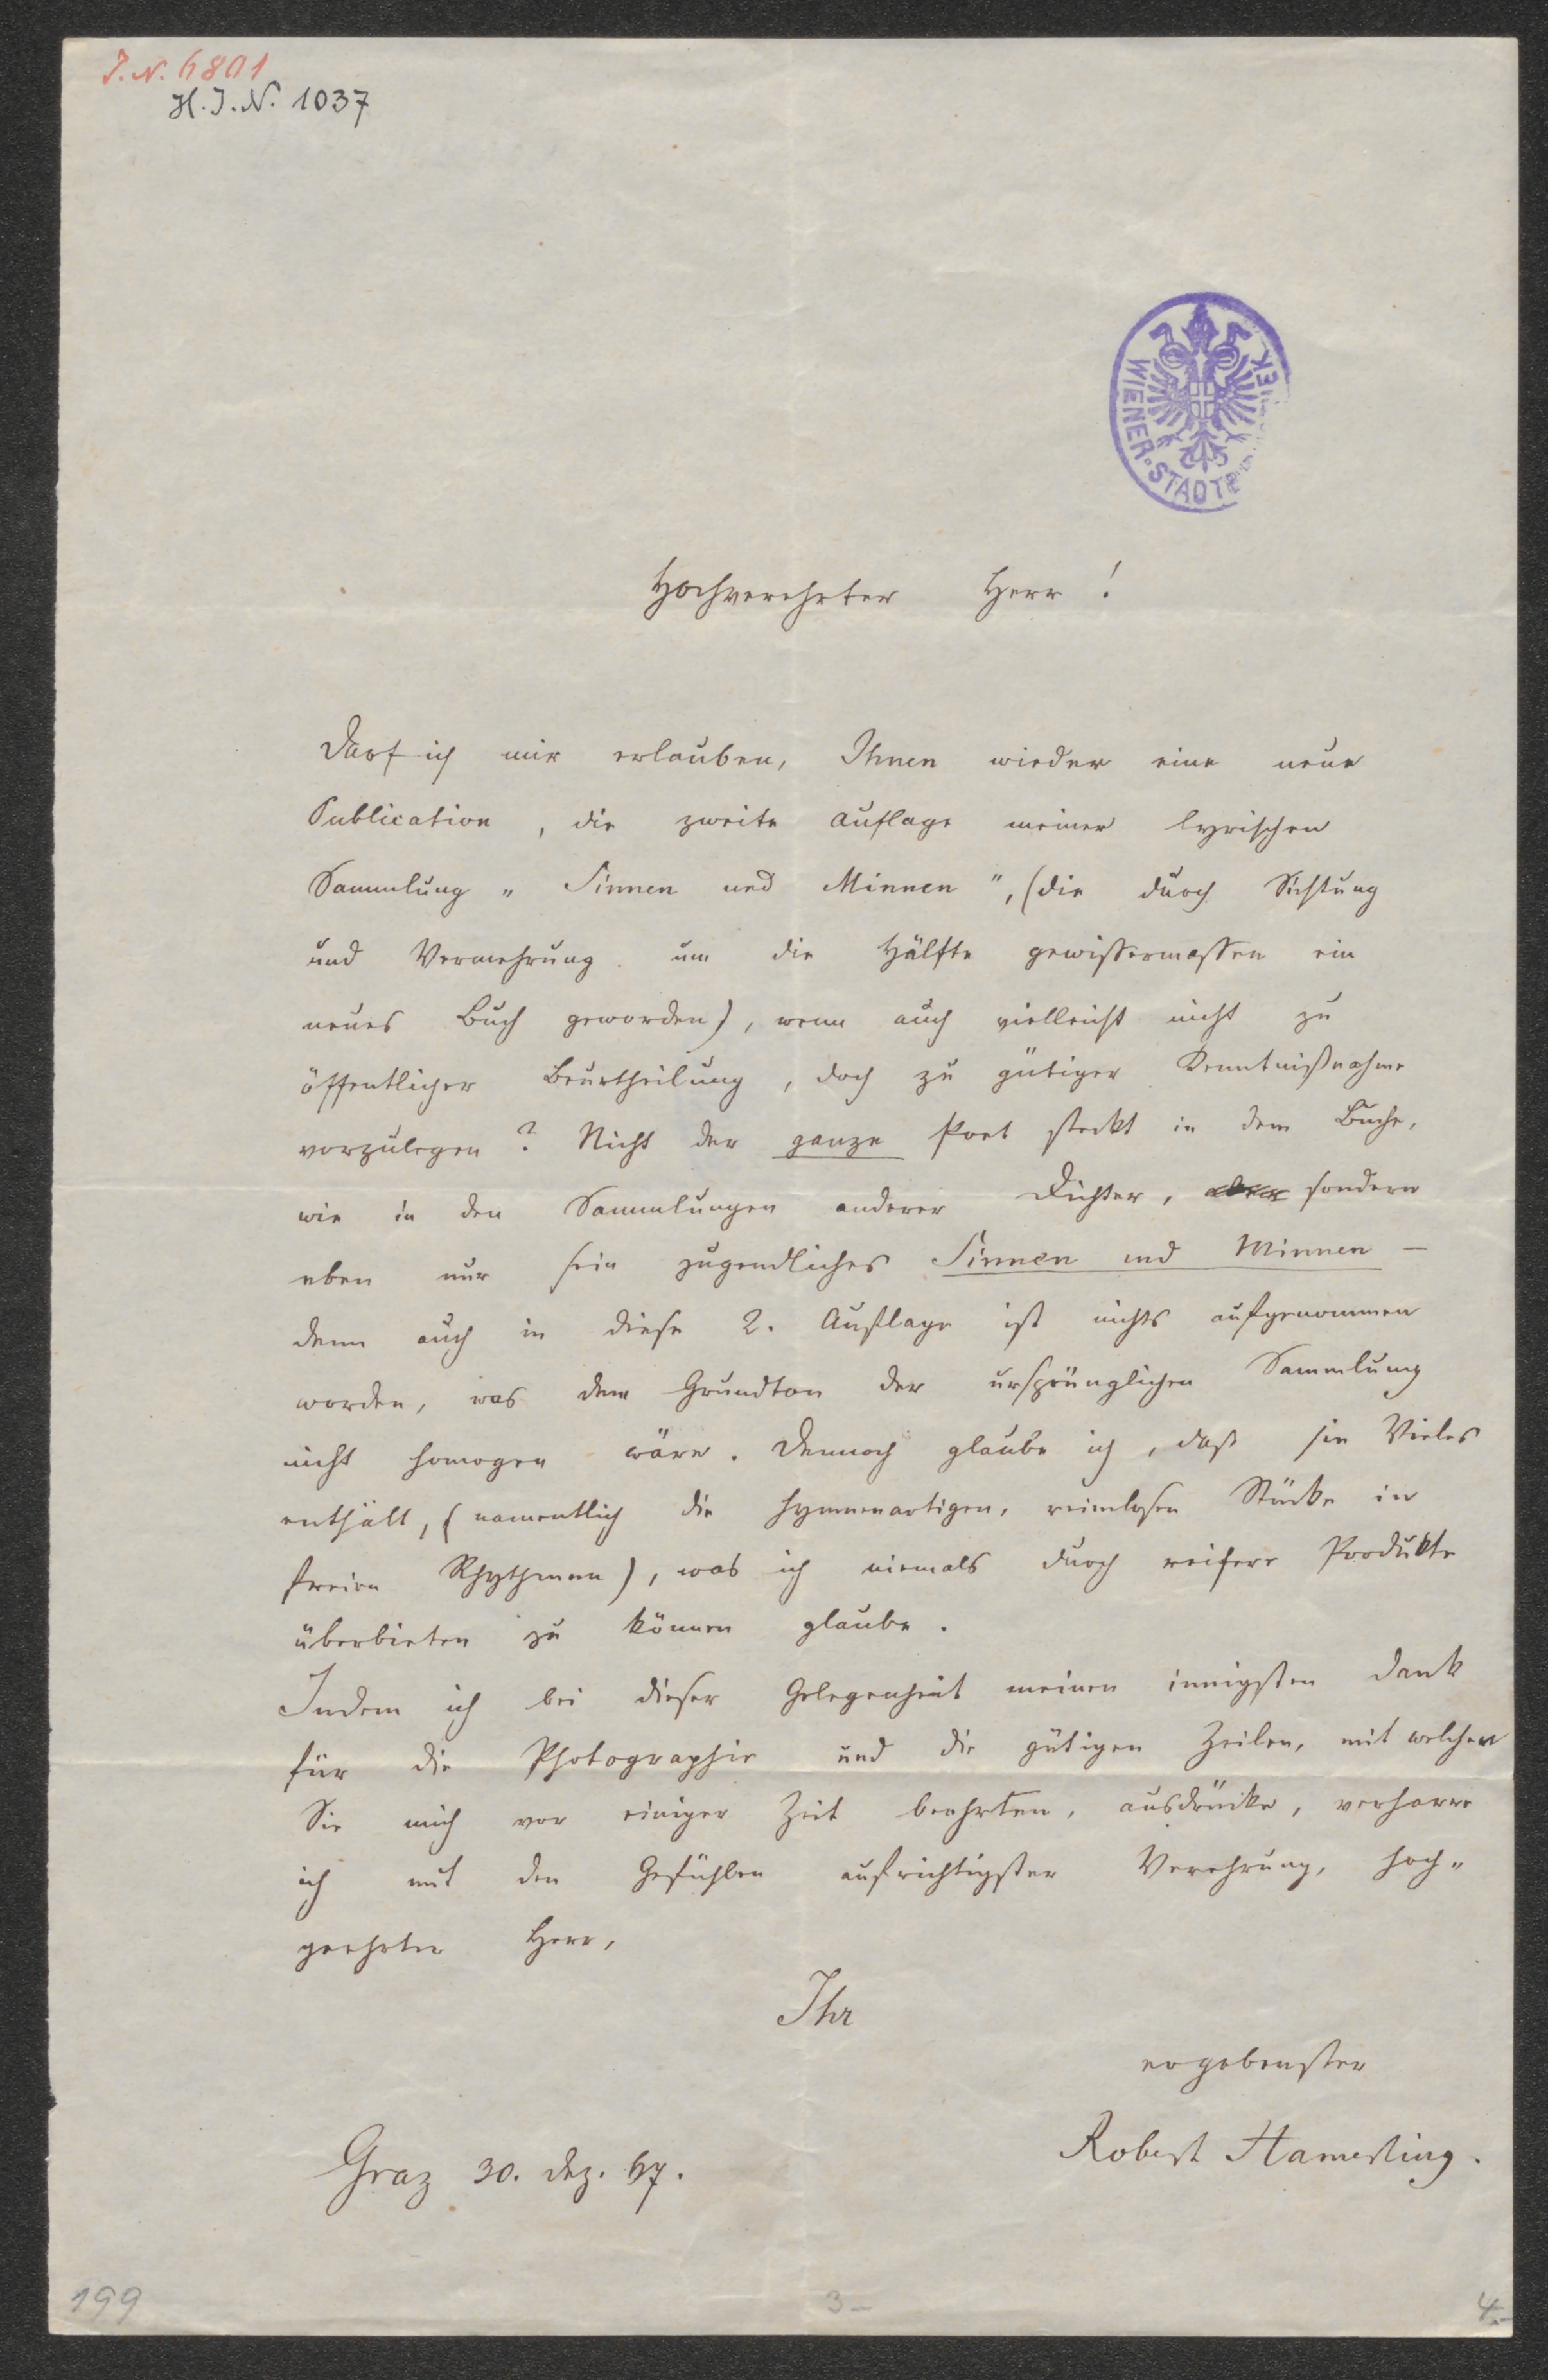 J. N. 6801
H. J. N. 1037
WIENER-STADTB EK
Hochverehrter Herr!
Darf ich mir erlauben, Ihnen wieder eine neue
Publication, die zweite Auflage meiner lyrischen
Sammlung „Sinnen und Minnen", (die durch Sichtung
und Vermehrung um die Hälfte gewissermassen ein
neues Buch geworden), wenn auch vielleicht nicht zu
öffentlicher Beurtheilung, doch zu gütiger Kenntnißnahme
vorzulegen? Nicht der ganze Poet steckt in dem Buche,
wie in den Sammlungen anderer Dichter, sondern
eben nur sein jugendliches Sinnen und Minnen –
denn auch in diese 2. Auflage ist nichts aufgenommen
worden, was dem Grundton der ursprünglichen Sammlung
nicht homogen wäre. Dennoch glaube ich, daß sie Vieles
enthält, (namentlich die hymnenartigen, reimlosen Stücke in
freien Rhythmen), was ich niemals durch reifere Produkte
überbieten zu können glaube.
Indem ich bei dieser Gelegenheit meinen innigsten Dank
für die Photographie und die gütigen Zeilen, mit welchen
Sie mich vor einiger Zeit beehrten, ausdrücke, verharre
ich mit den Gefühlen aufrichtigster Verehrung, hoch„
geehrter Herr,
Ihr
ergebenster
Robert Hamerling.
Graz 30. Dez. 67.
199
3–
4.–